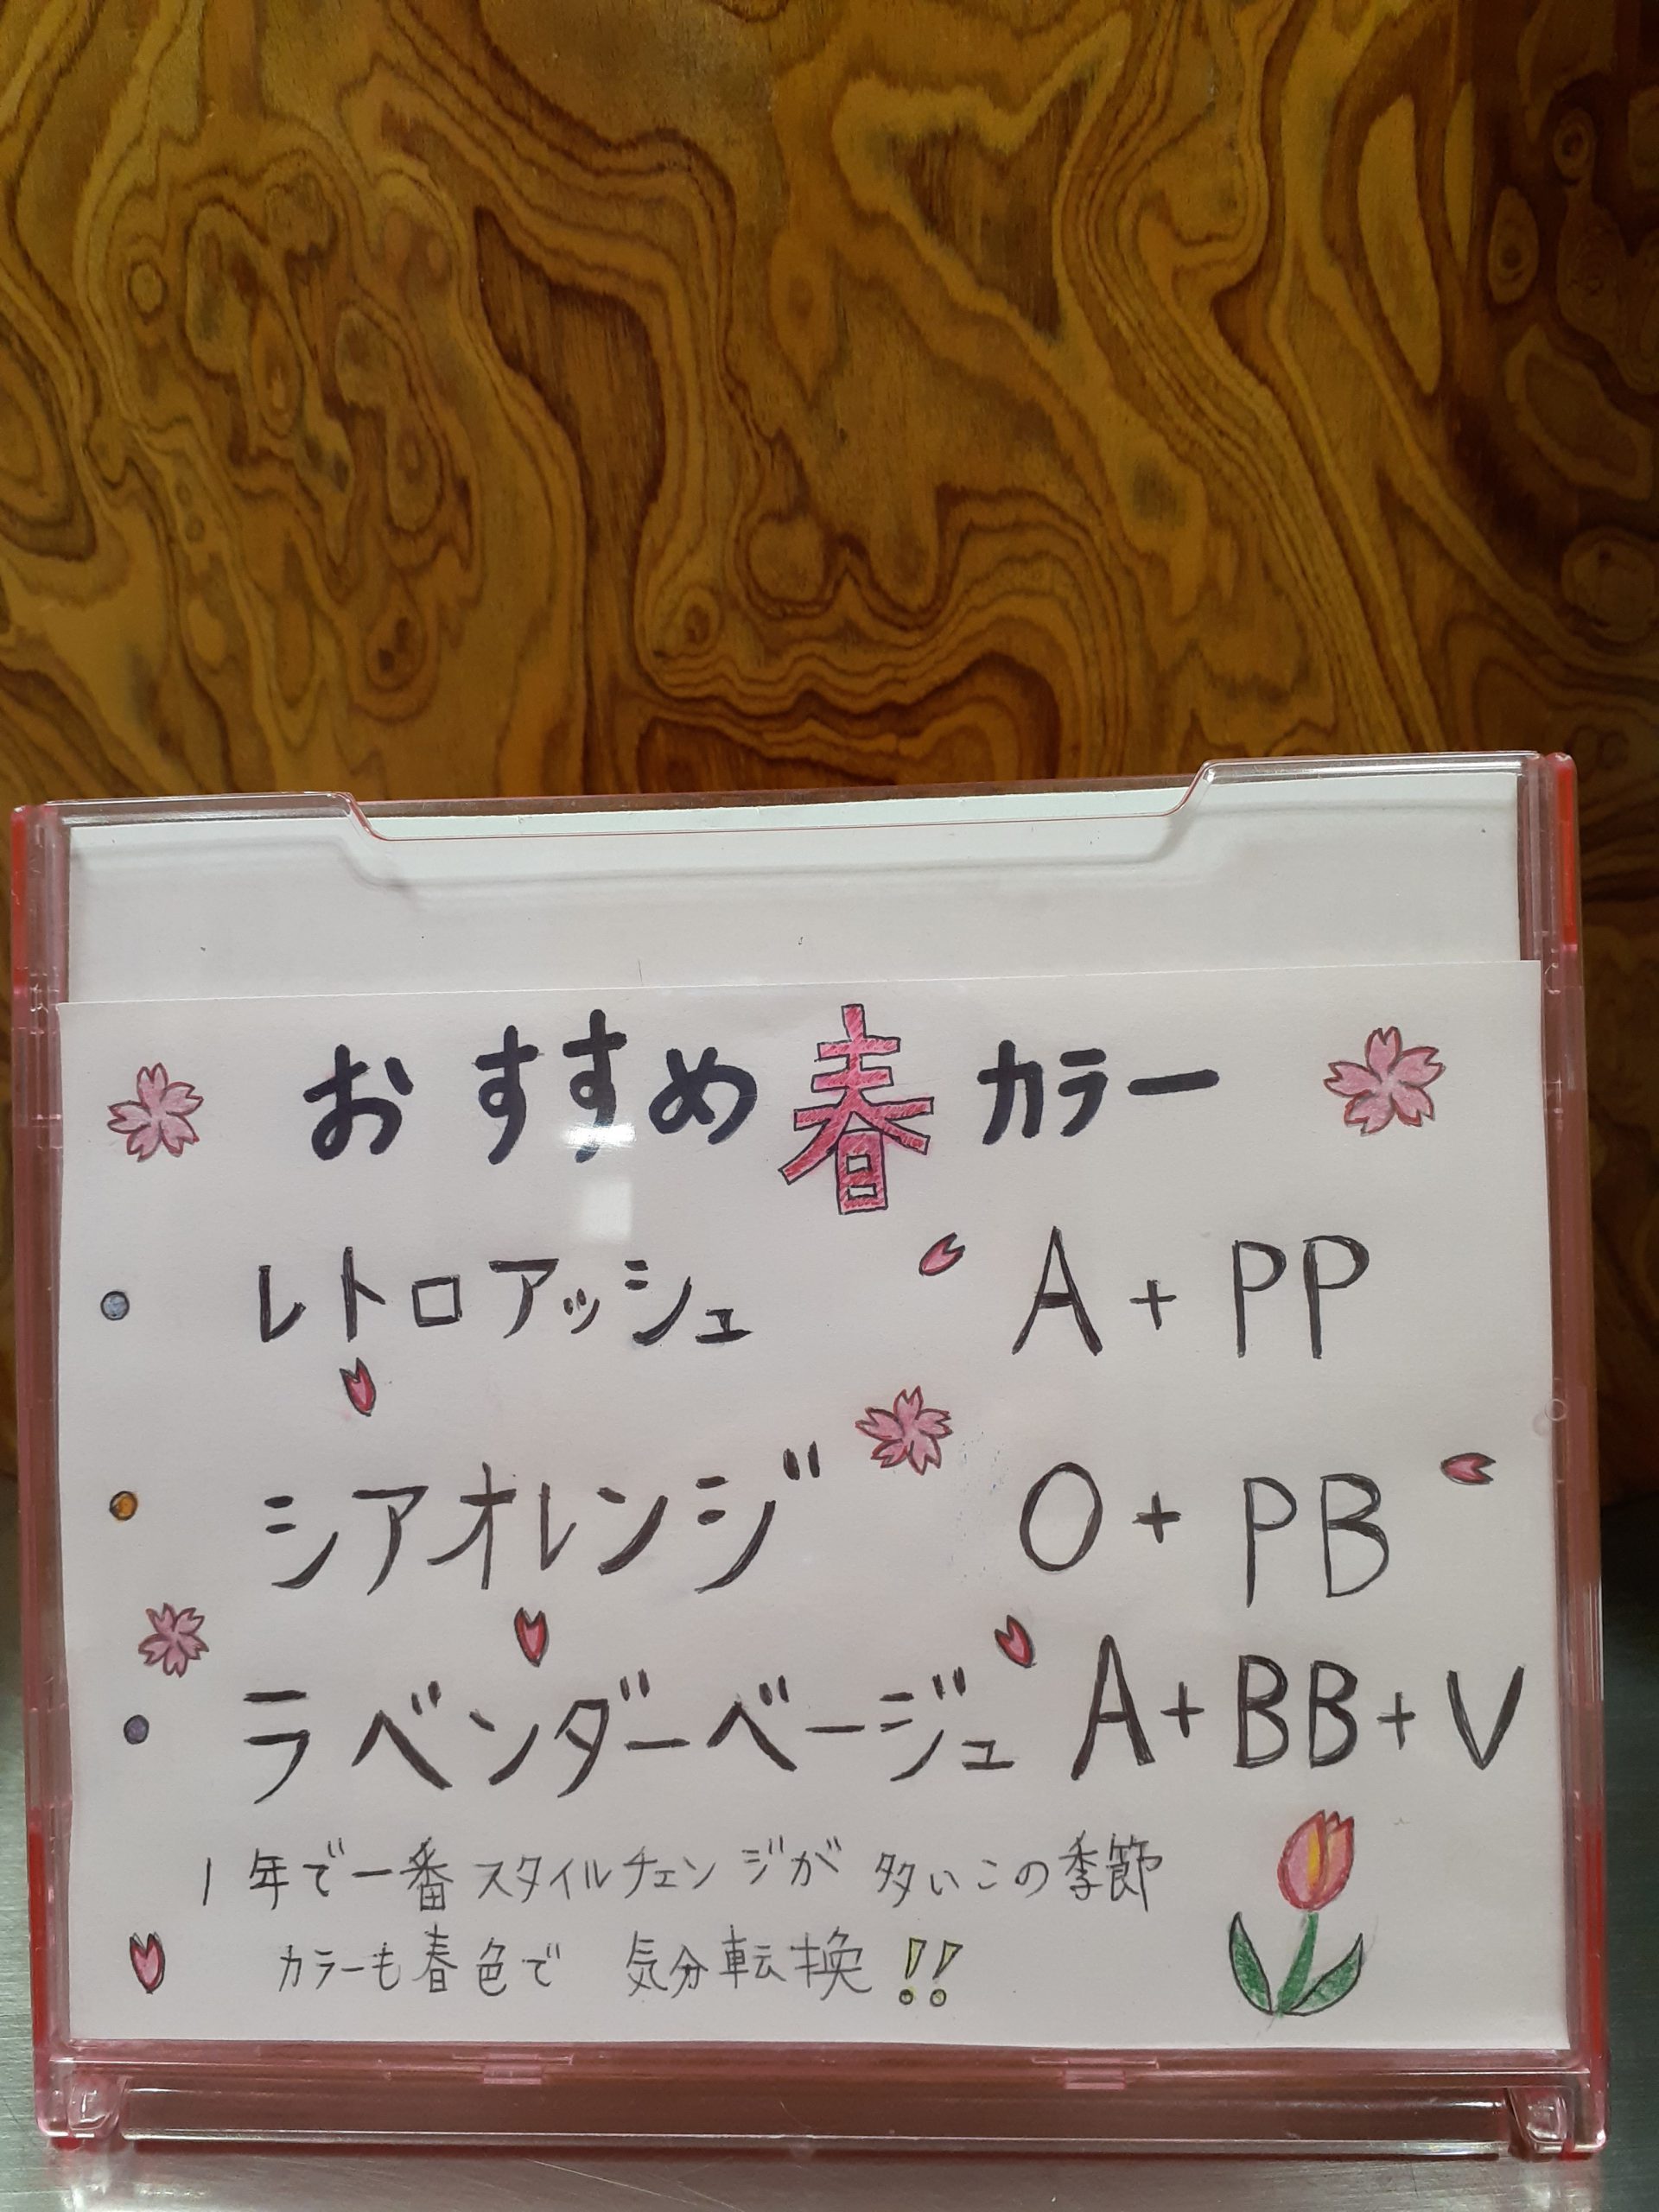 おすすめ春カラー
レトロアッシュ A + PP
シアオレンジ O + PB
ラベンダーベージュ A + BB + V
1年で一番スタイルチェンジが多いこの季節
カラーも春色で 気分転換!!